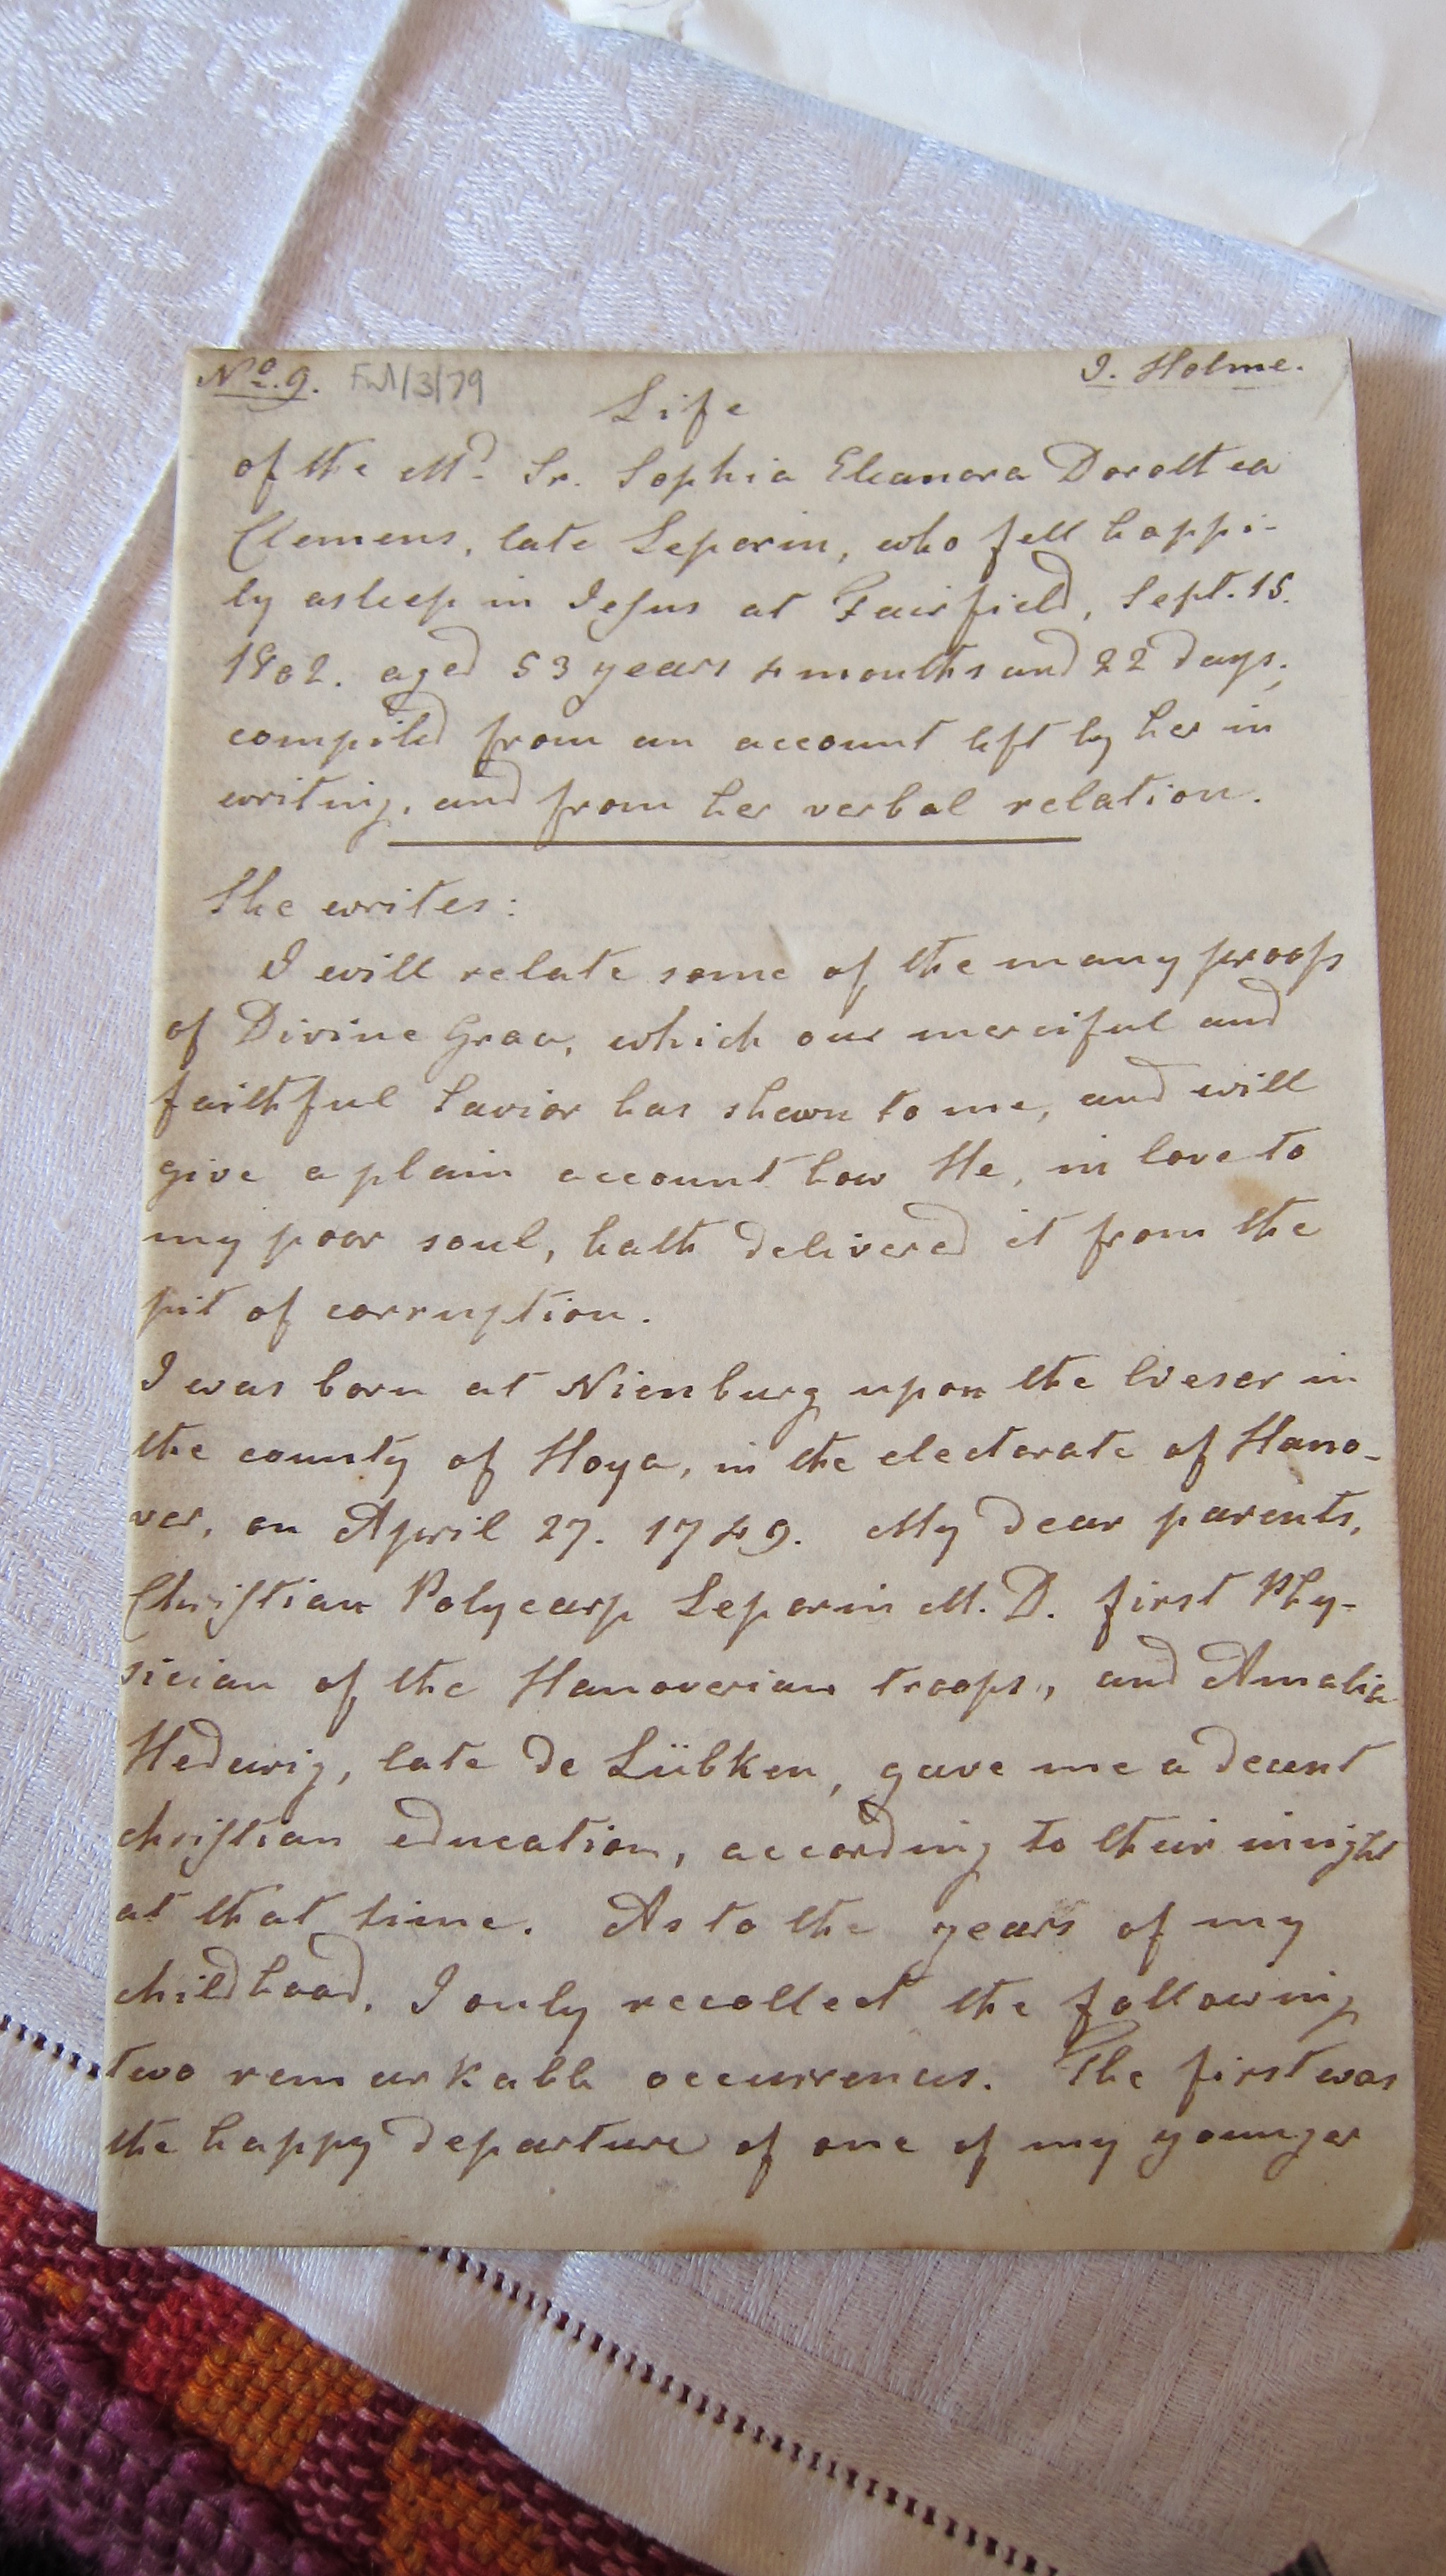 No. 9. Fwl/3/79
I. Holme.
Life
of the Md. Sr. Sophia Eleanora Dorothea
Clemens, late Leporin, who fell happi-
ly asleep in Jesus at Fairfield, Sept. 15.
1802. aged 53 years 4 months and 22 days,
compiled from an account left by her in
writing, and from her verbal relation.
She writes:
I will relate some of the many proofs
of Divine Grace, which our merciful and
faithful Savior has shewn to me, and will
give a plain account how He, in love to
my poor soul, hath delivered it from the
pit of corruption.
I was born at Nienburg upon the Weser in
the county of Hoya, in the electorate of Hano-
ver, on April 27. 1749. My dear parents,
Christian Polycarp Leporin M. D. first Phy-
sician of the Hanoverian troops, and Amalia
Hedewig, late de Lübken, gave me a decent
christian education, according to their insight
at that time. As to the years of my
childhood, I only recollect the following
two remarkable occurrences. The first was
the happy departure of one of my younger